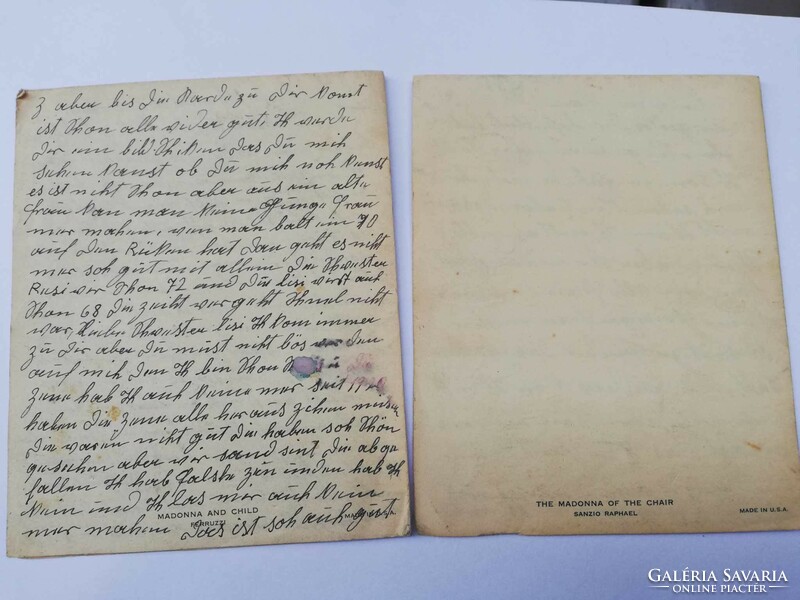 z aber bis die Karde zu dir komt
ist Shon alle wider gut. Ih werde
dir ein bild Shiken das du mih
sehen kanst ob du mih noh kenst
es ist niht Shon aber aus ein alte
frau kan man keine Junge frau
mer mahen, wen man balt ein 70
auf den Rüken hat dan geht es niht
mer soh gut mit allem die Shwester
Resi wir Shon 72 und du lisi wirst auh
Shon 68 die zeiht vergeht Shnel niht
war, Liebe Shwester lisi Ih kom immer
zu dir aber du must niht bös werden
auf mih den Ih bin Shon
zene hab Ih auh keine mer seit 19
haben die zene alle heraus zihen misen
die waren niht gut die haben soh Shön
gesehen aber wir sand sint die abge
fallen Ih hab falshe zen unden hab Ih
kein und Ih las mer auh kein
mer mahen das ist soh auh gut
MADONNA AND CHILD
FERRUZZI
THE MADONNA OF THE CHAIR
SANZIO RAPHAEL
MADE IN U.S.A.
GALÉRIA SAVARIA
ONLINE PIACTÉR